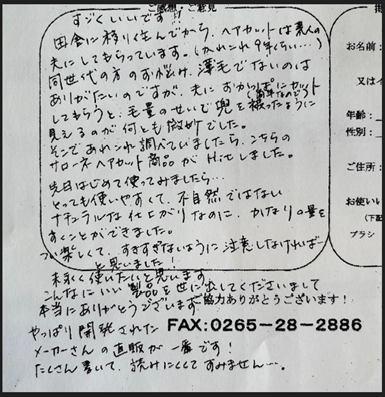 ご感想・ご意見
すごくいいです!!
田舎に移り住んでから、ヘアカットは素人の
夫にしてもらっています。(かれこれ9年くらい…)
同世代の方のすがみ、薄毛でないのは
ありがたいのですが、夫におかっぱにカット
してもらうと、毛量のせいで兜を被ったように
見えるのが何とも微妙でした。
そこであれこれ調べていましたら、こちらの
サロンヘアカット商品がHitしました。
先日はじめて使ってみましたら…
とっても使いやすくて、不自然ではない
ナチュラルな仕上がりなのに、かなりの量を
すくことができました。
つい楽しくて、すきすぎないように注意しなければー
と思いました!
末永く使いたいと思います
こんなにいい製品を世に出してくださいまして
本当にありがとうございます
ご協力ありがとうございます!
やっぱり開発された
FAX:0265-28-2886
メーカーさんの直販が一番です!
たくさん書いて、読みにくくてすみません…。
お名前
又はイ
年齢
性別:
ご住所:
お使いい
(下記
ブラシ